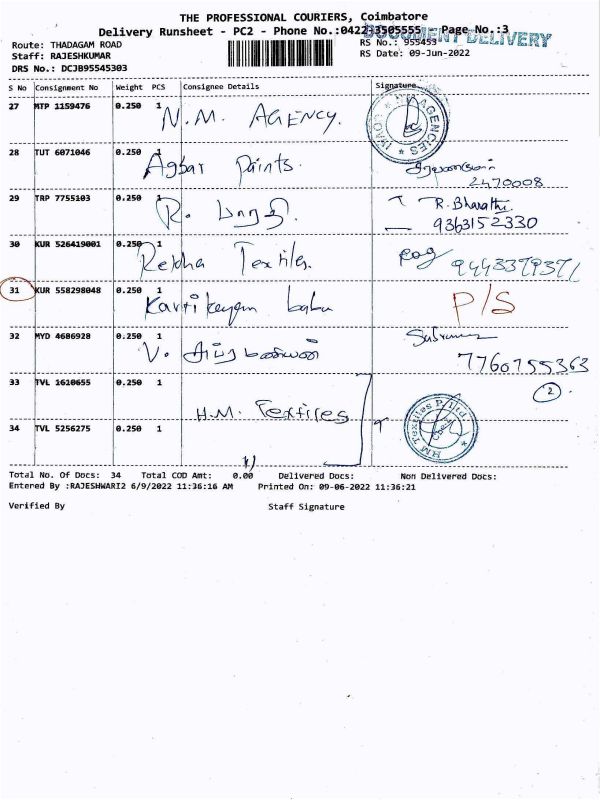 THE PROFESSIONAL COURIERS, Coimbatore
Delivery Runsheet - PC2 - Phone No.:0422-3505555 Page No.:3
DOCUMENT DELIVERY
Route: THADAGAM ROAD
RS No.: 955453
Staff: RAJESHKUMAR
RS Date: 09-Jun-2022
DRS No.: DCJB95545303
S No Consignment No Weight PCS Consignee Details Signature
27 MTP 1159476 0.250 1 N.M. AGENCY.
28 TUT 6071046 0.250 1 Agbar Paints.
2470008
29 TRP 7755103 0.250 1 R. பாரதி. R. Bharathi.
9363152330
30 KUR 526419001 0.250 1 Rekha Textiles.
31 KUR 558298048 0.250 1 Kartikeyan babu P/S
32 MYD 4686928 0.250 1 V. சுப்ரமணியன்
7760755363
2
33 TVL 1610655 0.250 1 H.M. Textiles
HM Textiles P. Ltd
34 TVL 5256275 0.250 1
Total No. Of Docs: 34 Total COD Amt: 0.00 Delivered Docs: Non Delivered Docs:
Entered By :RAJESHWARI2 6/9/2022 11:36:16 AM Printed On: 09-06-2022 11:36:21
Verified By Staff Signature